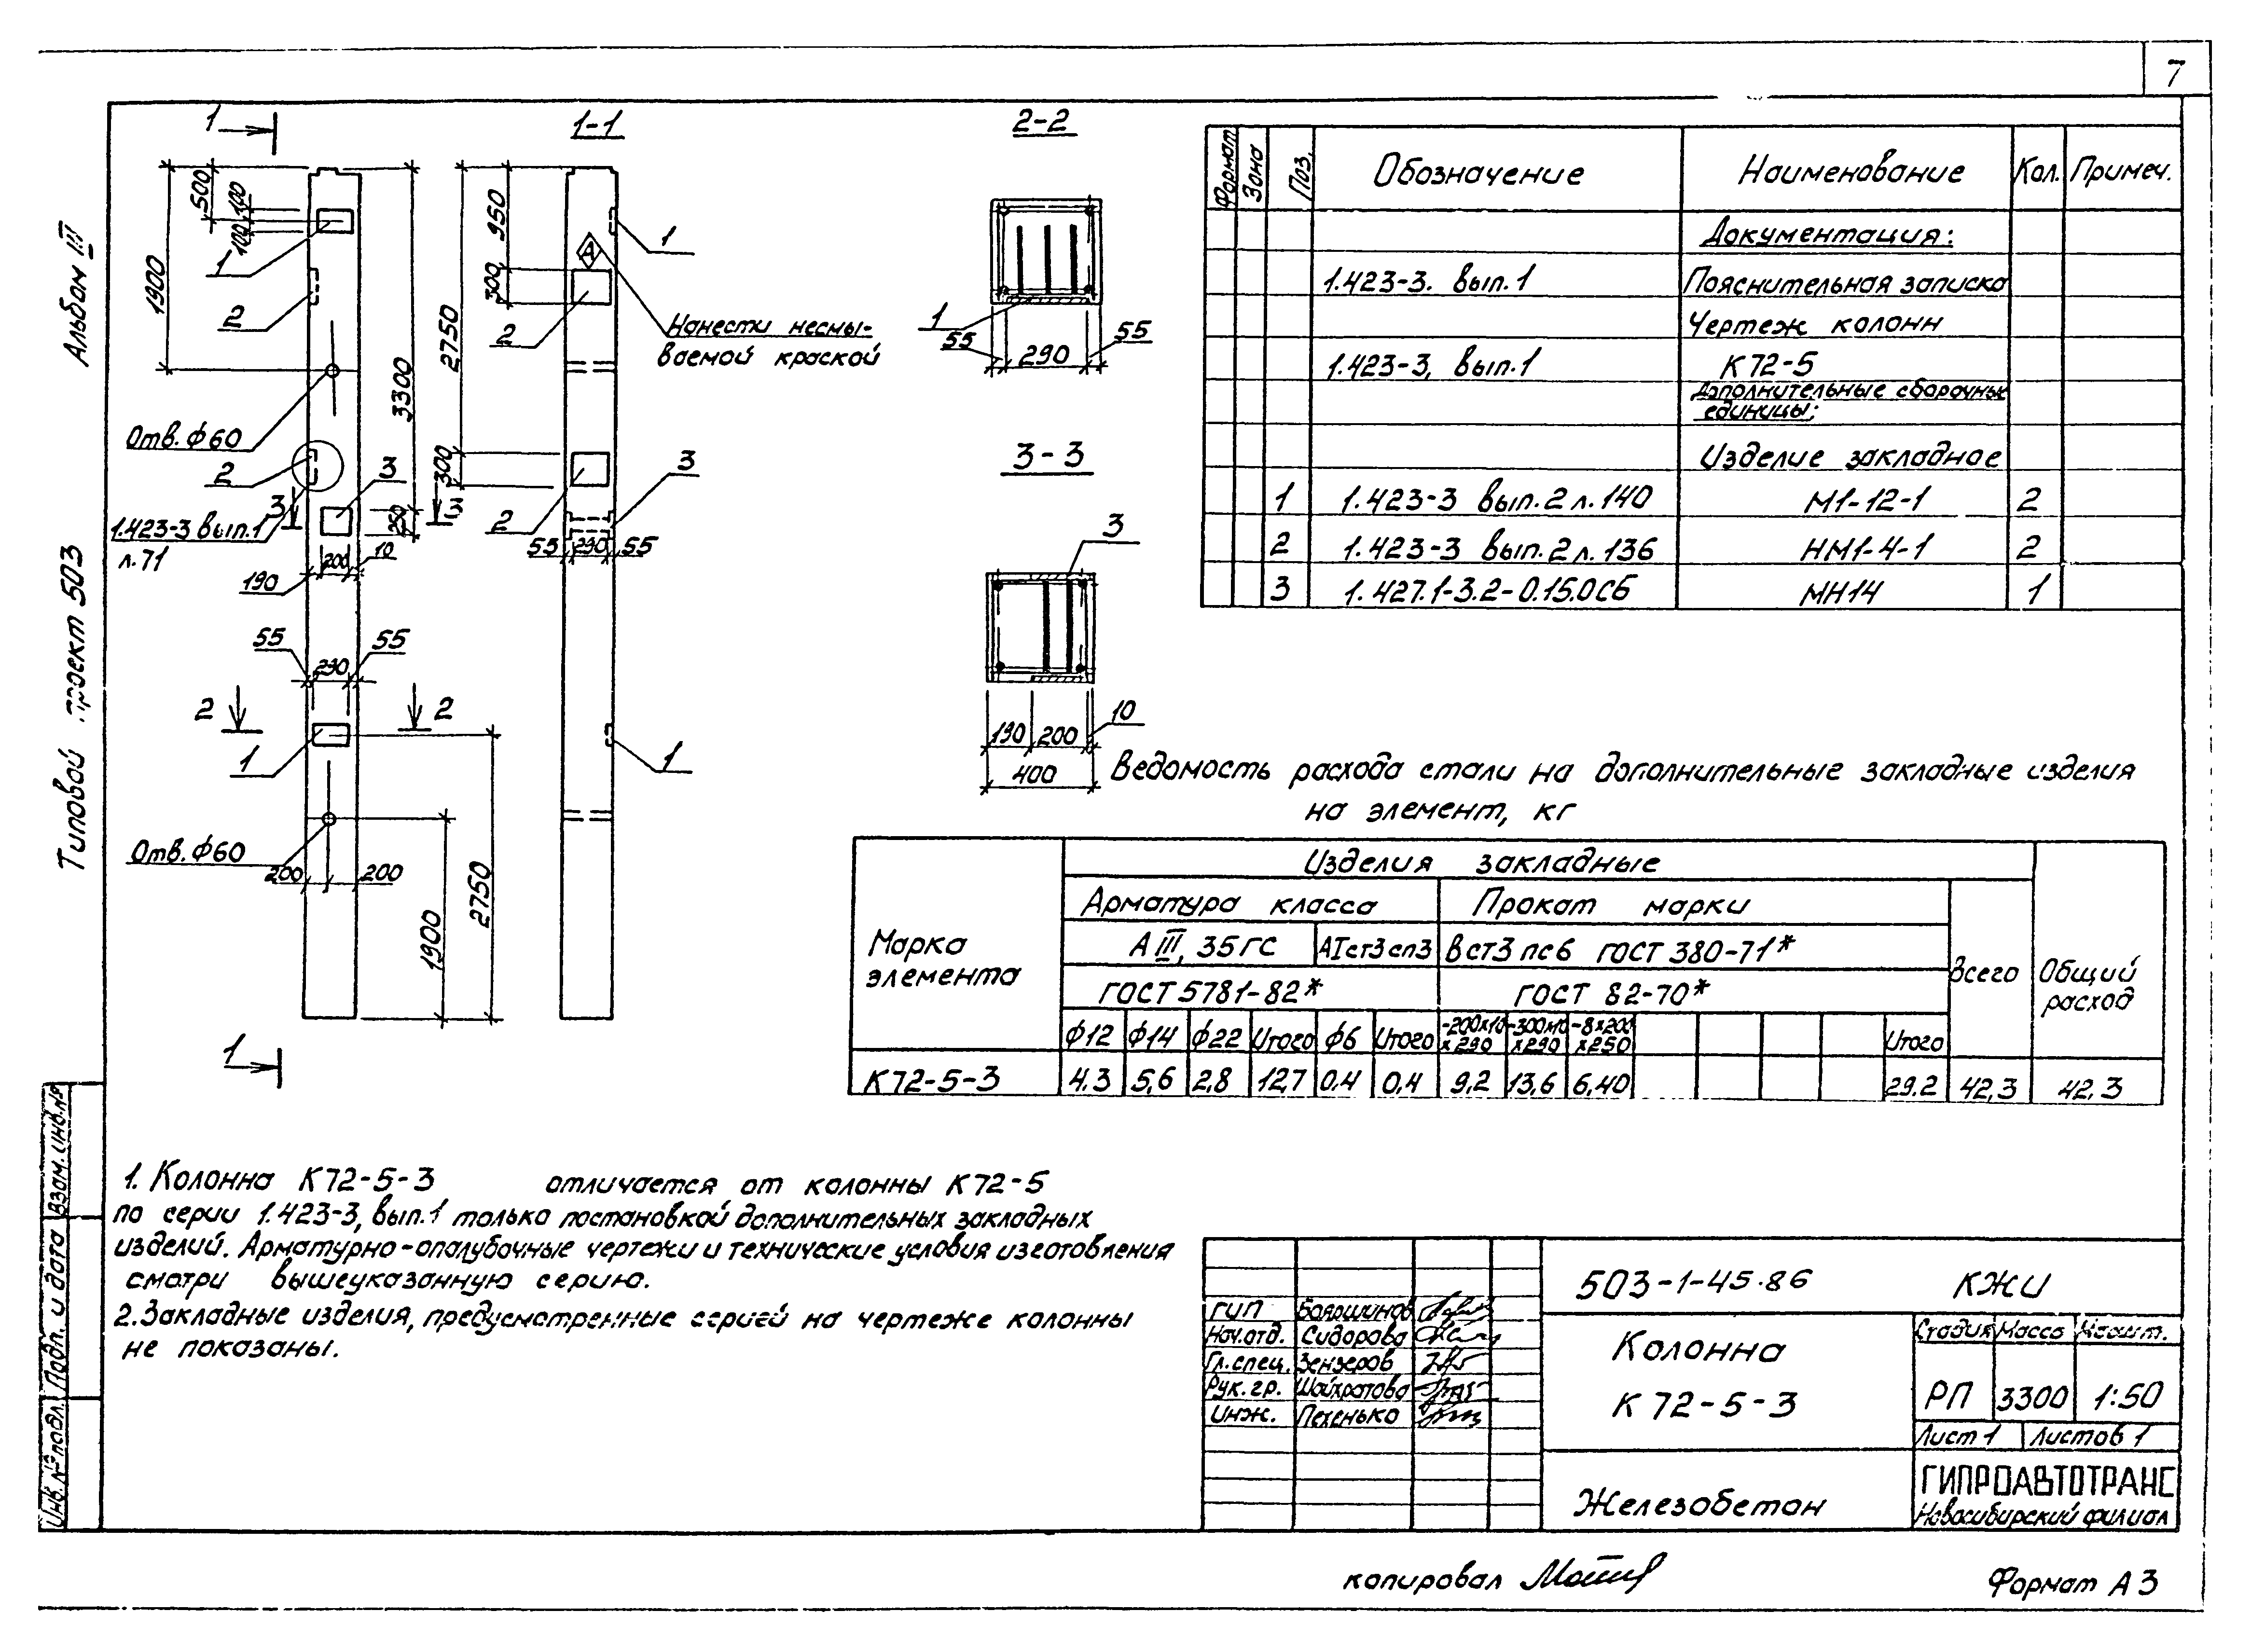 7
Альбом III
Типовой проект 503
Взам. инв. №
Подп. и дата
Инв. № подл.
1
1-1
2-2
3-3
500
100
100
1900
1
2
3300
Отв. ф60
2
3
3
1.423-3 вып. 1
л. 71
250
200
10
190
55
290
55
2
2
1
Отв. ф60
200
200
1900
2750
1
950
300
2750
300
1
А
2
Нанести несмы-
ваемой краской
3
3
2
55
290
55
1
1
55
290
55
3
10
190
200
400
Формат
Зона
Поз.
Обозначение
Наименование
Кол.
Примеч.
Документация:
1.423-3. вып. 1 Пояснительная записка
Чертеж колонн
1.423-3, вып. 1 К72-5
Дополнительные сборочные
единицы:
Изделие закладное
1 1.423-3 вып. 2 л. 140 М1-12-1 2
2 1.423-3 вып. 2 л. 136 НМ1-4-1 2
3 1.427.1-3.2-0.15.0СБ МН14 1
Ведомость расхода стали на дополнительные закладные изделия
на элемент, кг
Марка
элемента
Изделия закладные
Арматура класса
Прокат марки
АIII, 35ГС
АIст3сп3
Вст3пс6 ГОСТ 380-71*
ГОСТ 5781-82*
ГОСТ 82-70*
Всего
Общий
расход
ф12 ф14 ф22 Итого ф6 Итого
-200х10
х290
-300х10
х290
-8х200
х250
Итого
К72-5-3 4.3 5,6 2,8 12,7 0,4 0,4 9,2 13,6 6,40 29,2 42,3 42,3
1. Колонна К72-5-3 отличается от колонны К72-5
по серии 1.423-3, вып. 1 только постановкой дополнительных закладных
изделий. Арматурно-опалубочные чертежи и технические условия изготовления
смотри вышеуказанную серию.
2. Закладные изделия, предусмотренные серией на чертеже колонны
не показаны.
503-1-45.86 КЖИ
ГИП Бояршинов
Нач. отд. Сидорова
Гл. спец. Зензеров
Рук. гр.
Инж.
Колонна
К 72-5-3
Стадия Масса Масшт.
РП 3300 1:50
Лист 1 Листов 1
Железобетон
ГИПРОАВТОТРАНС
Новосибирский филиал
копировал
Формат А3